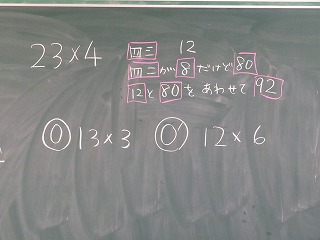 23×4 四三 12
四二が 8 だけど 80
12 と 80 を あわせて 92
⓪ 13×3 ⓪' 12×6